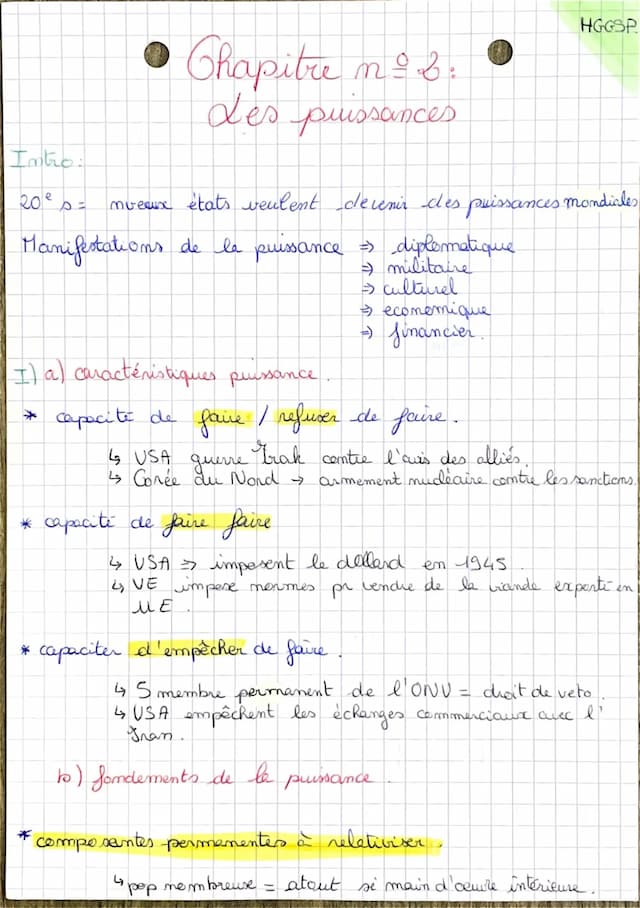 HGGSP
Chapitre nº2:
Les puissances
Intro:
20e s = nveaux états veulent devenir des puissances mondiales
Manifestations de la puissance ⇒ diplomatique
⇒ militaire
⇒ culturel
⇒ economique
⇒ financier.
I) a) caractéristiques puissance.
* capacité de faire / refuser de faire.
↳ USA guerre Irak contre l'avis des alliés.
↳ Corée du Nord → armement nucléaire contre les sanctions.
* capacité de faire faire
↳ USA ⇒ imposent le dollard en 1945.
↳ UE impose normes pr vendre de la viande exporté en
UE.
* capaciter d'empêcher de faire.
↳ 5 membre permanent de l'ONU = droit de veto.
↳ USA empêchent les échanges commerciaux avec l'
Iran.
b) fondements de la puissance.
* composantes permanentes à relativiser.
↳ pop nombreuse = atout si main d'œuvre intérieure.